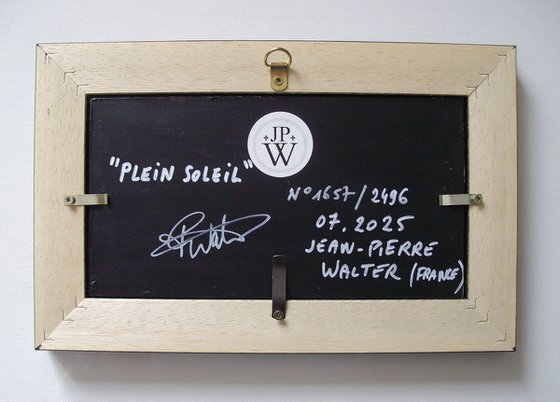 JP
W
"PLEIN SOLEIL"
N°1657/2496
07.2025
JEAN-PIERRE
WALTER (FRANCE)